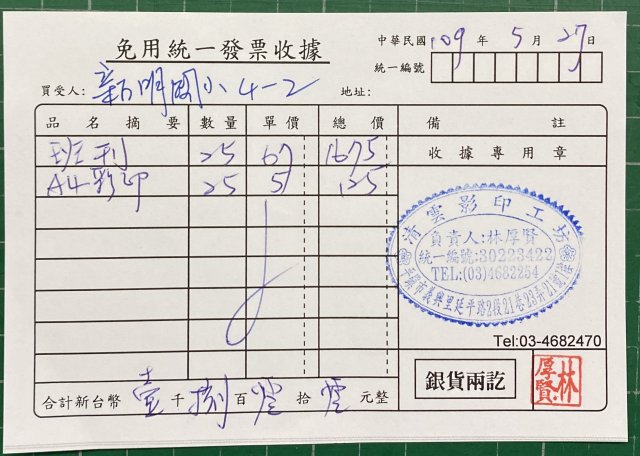 免用統一發票收據
中華民國 109 年 5 月 27 日
統一編號
買受人: 新明國小 4-2 地址:
品名摘要 數量 單價 總價 備註
班刊 25 67 1675 收據專用章
A4彩印 25 5 125
清雲影印工坊
負責人:林厚賢
統一編號:30223422
TEL:(03)4682254
市義興里延平路2段21巷23弄21號
Tel:03-4682470
銀貨兩訖
林厚賢
合計新台幣 壹 千 捌 百 零 拾 零 元整